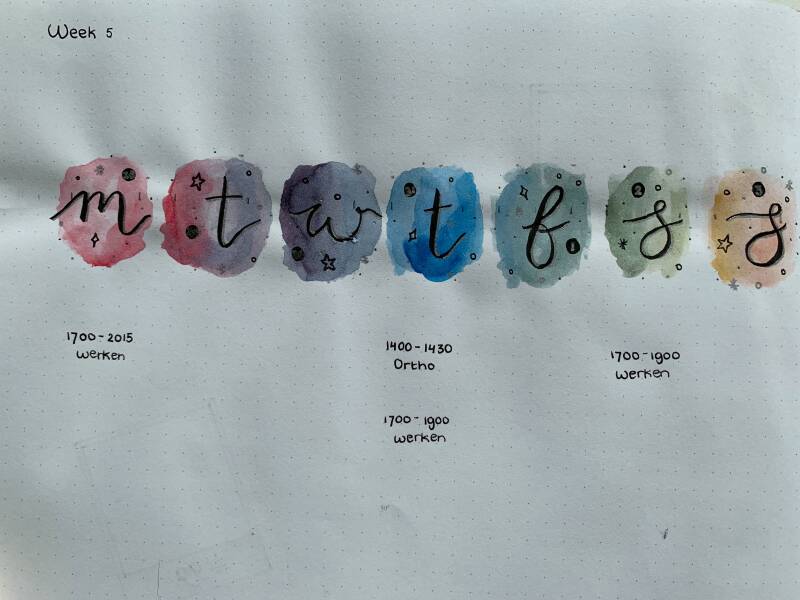 Week 5
m t w t f s s
1700-2015
werken
1400-1430
Ortho
1700-1900
werken
1700-1900
werken